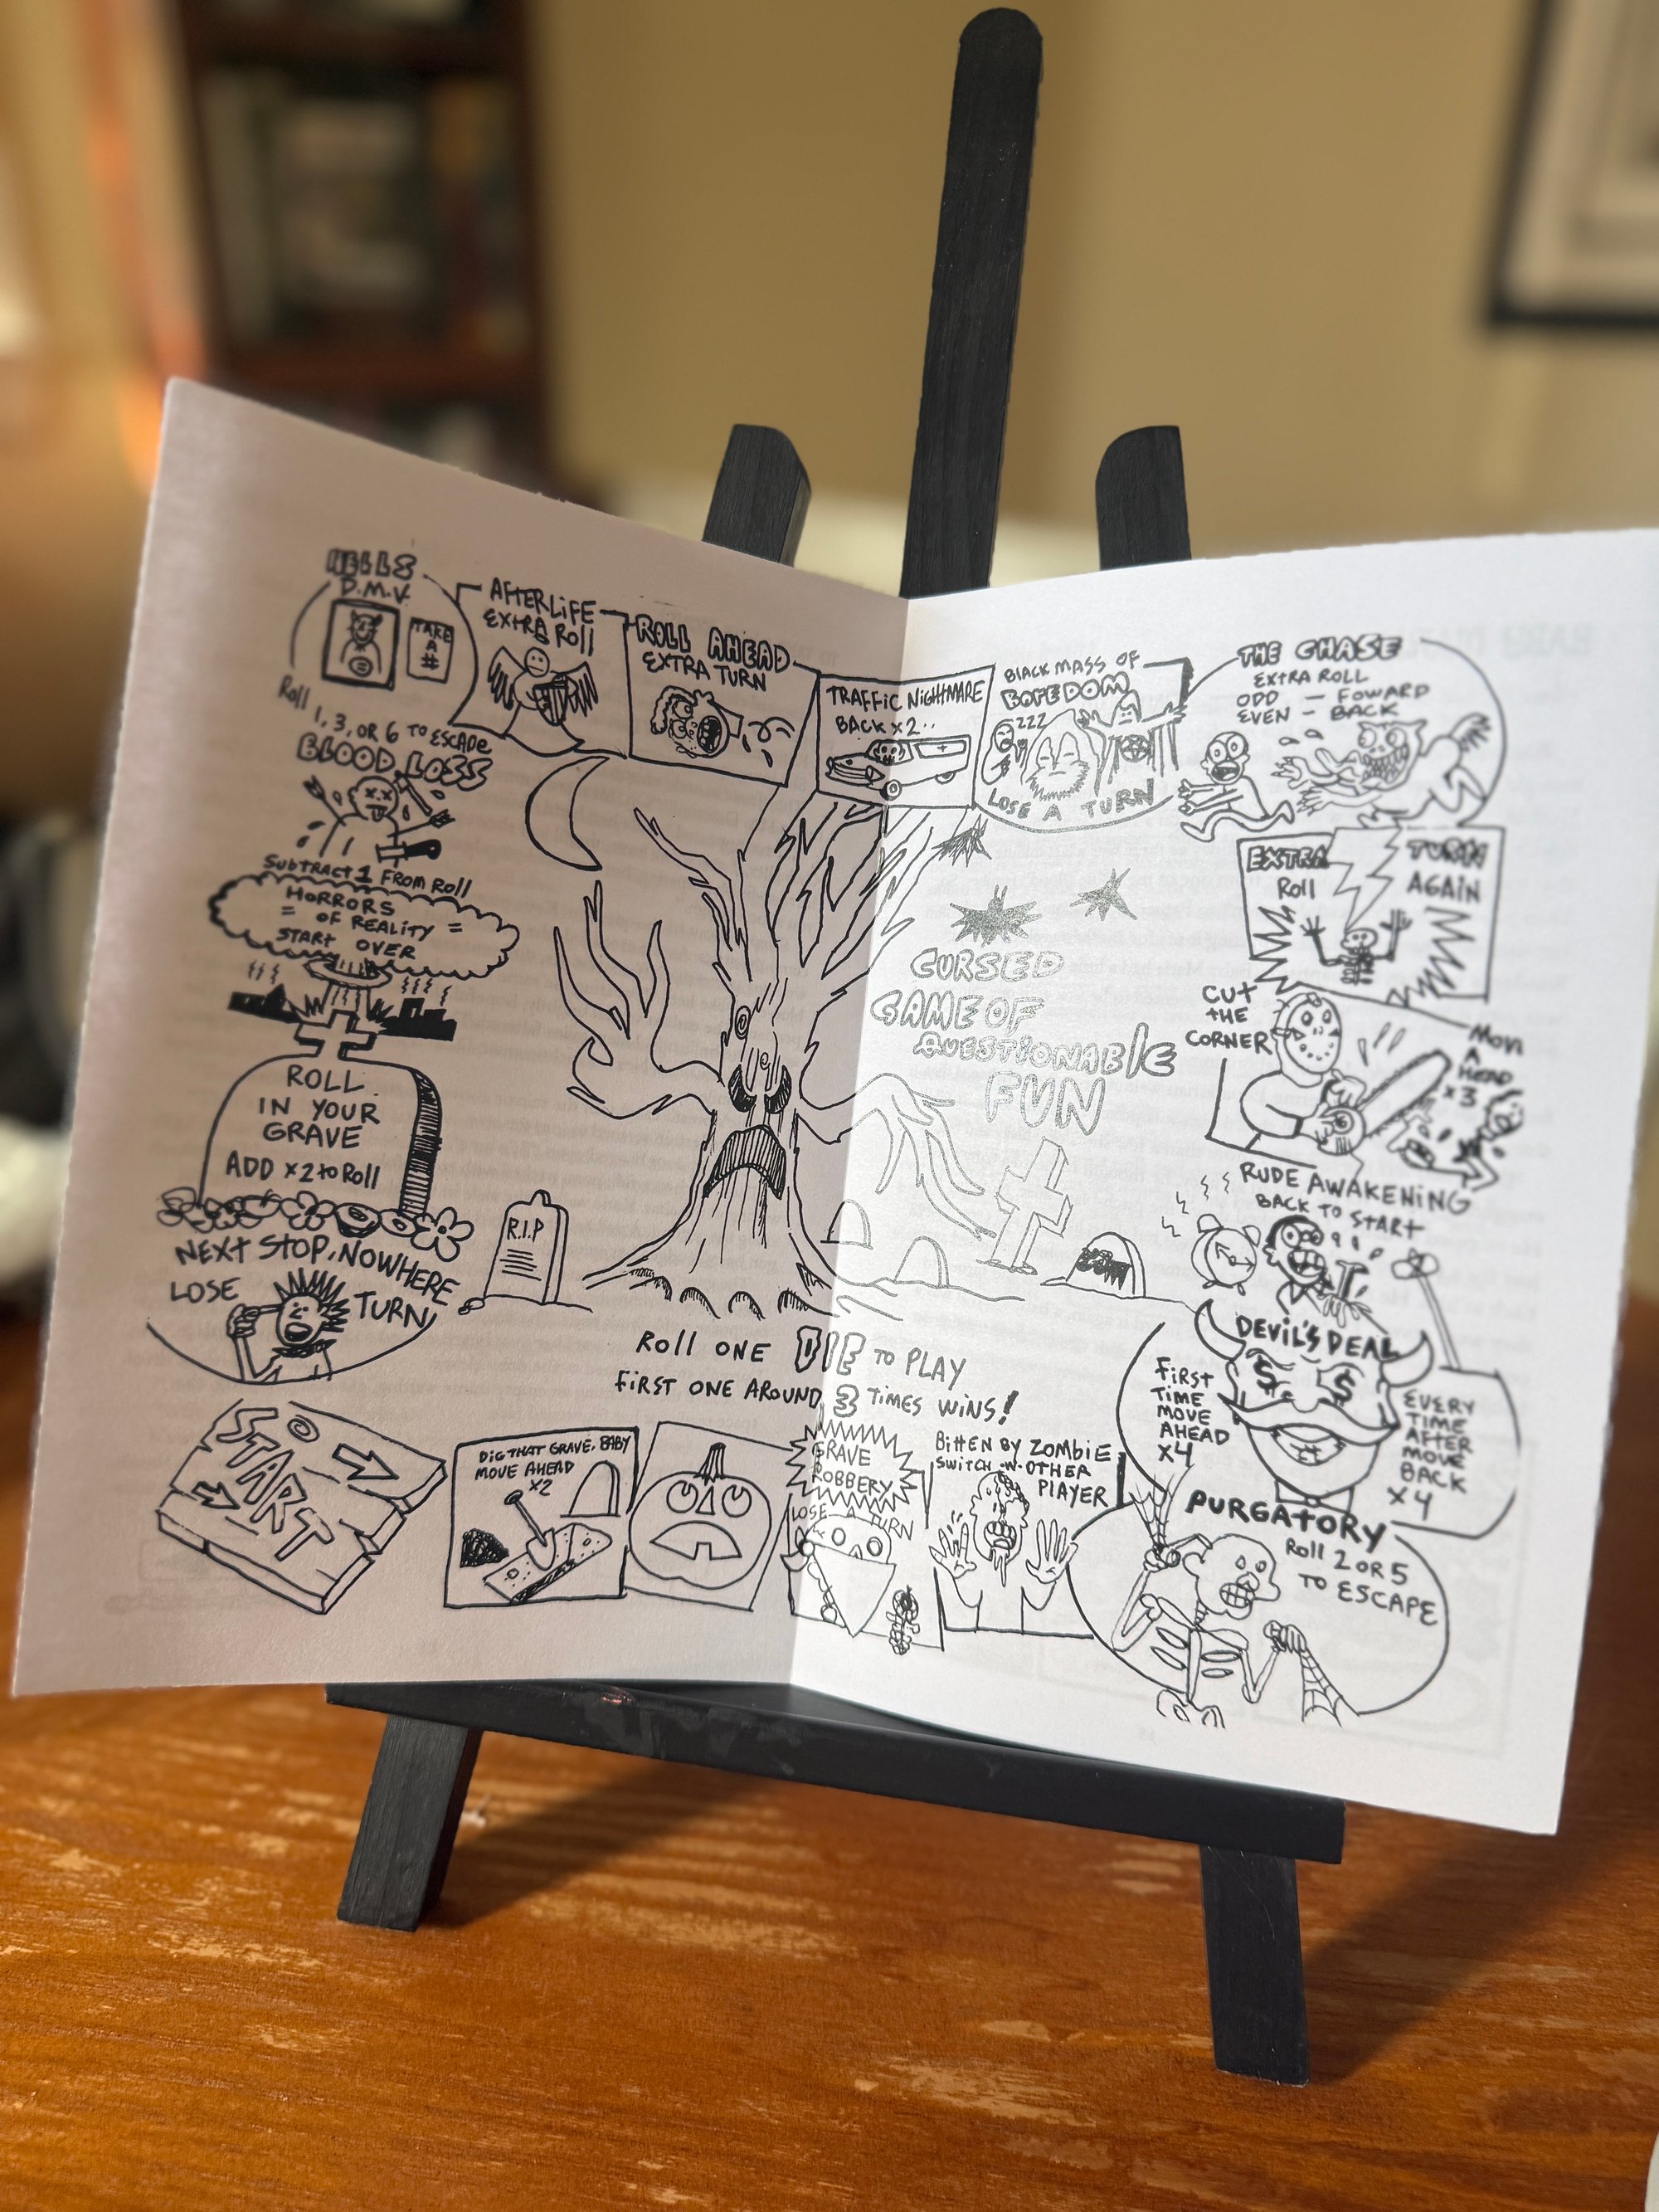 HELLS
D.M.V.
TAKE
A
#
Roll 1, 3, OR 6 TO ESCADE
AFTERLiFE
EXTRA Roll
ROLL AHEAD
EXTRA TURN
TRAFFiC NIGHTMARE
BACK x 2..
BlACK MASS OF
BOREDOM
ZZZ
LOSE A TURN
THE CHASE
EXTRA ROLL
ODD — FOWARD
EVEN — BACK
EXTRA
Roll
TURN
AGAIN
CUT
THE
CORNER
MOVE
A
HEAD
x3
RUDE AWAKENiNG
BACK TO START
DEViL'S DEAL
FiRST
TiME
MOVE
AHEAD
X4
EVERY
TiME
AFTER
MOVE
BACK
X 4
PURGATORY
Roll 2 OR 5
TO ESCAPE
BiTTEN BY ZOMBiE
SWiTCH W. OTHER
PLAYER
GRAVE
ROBBERY
LOSE A TURN
DiG THAT GRAVE, BABY
MOVE AHEAD
X2
START
NEXT STOP, NOWHERE
LOSE TURN
ROLL
IN YOUR
GRAVE
ADD x2 to Roll
HORRORS
= OF REALiTY =
START OVER
BLOOD LOSS
SUBTRACT 1 FROM ROLL
CURSED
GAME OF
QUESTiONABlE
FUN
R.I.P
Roll ONE DIE TO PLAY
FiRST ONE AROUND 3 TiMES WiNS!